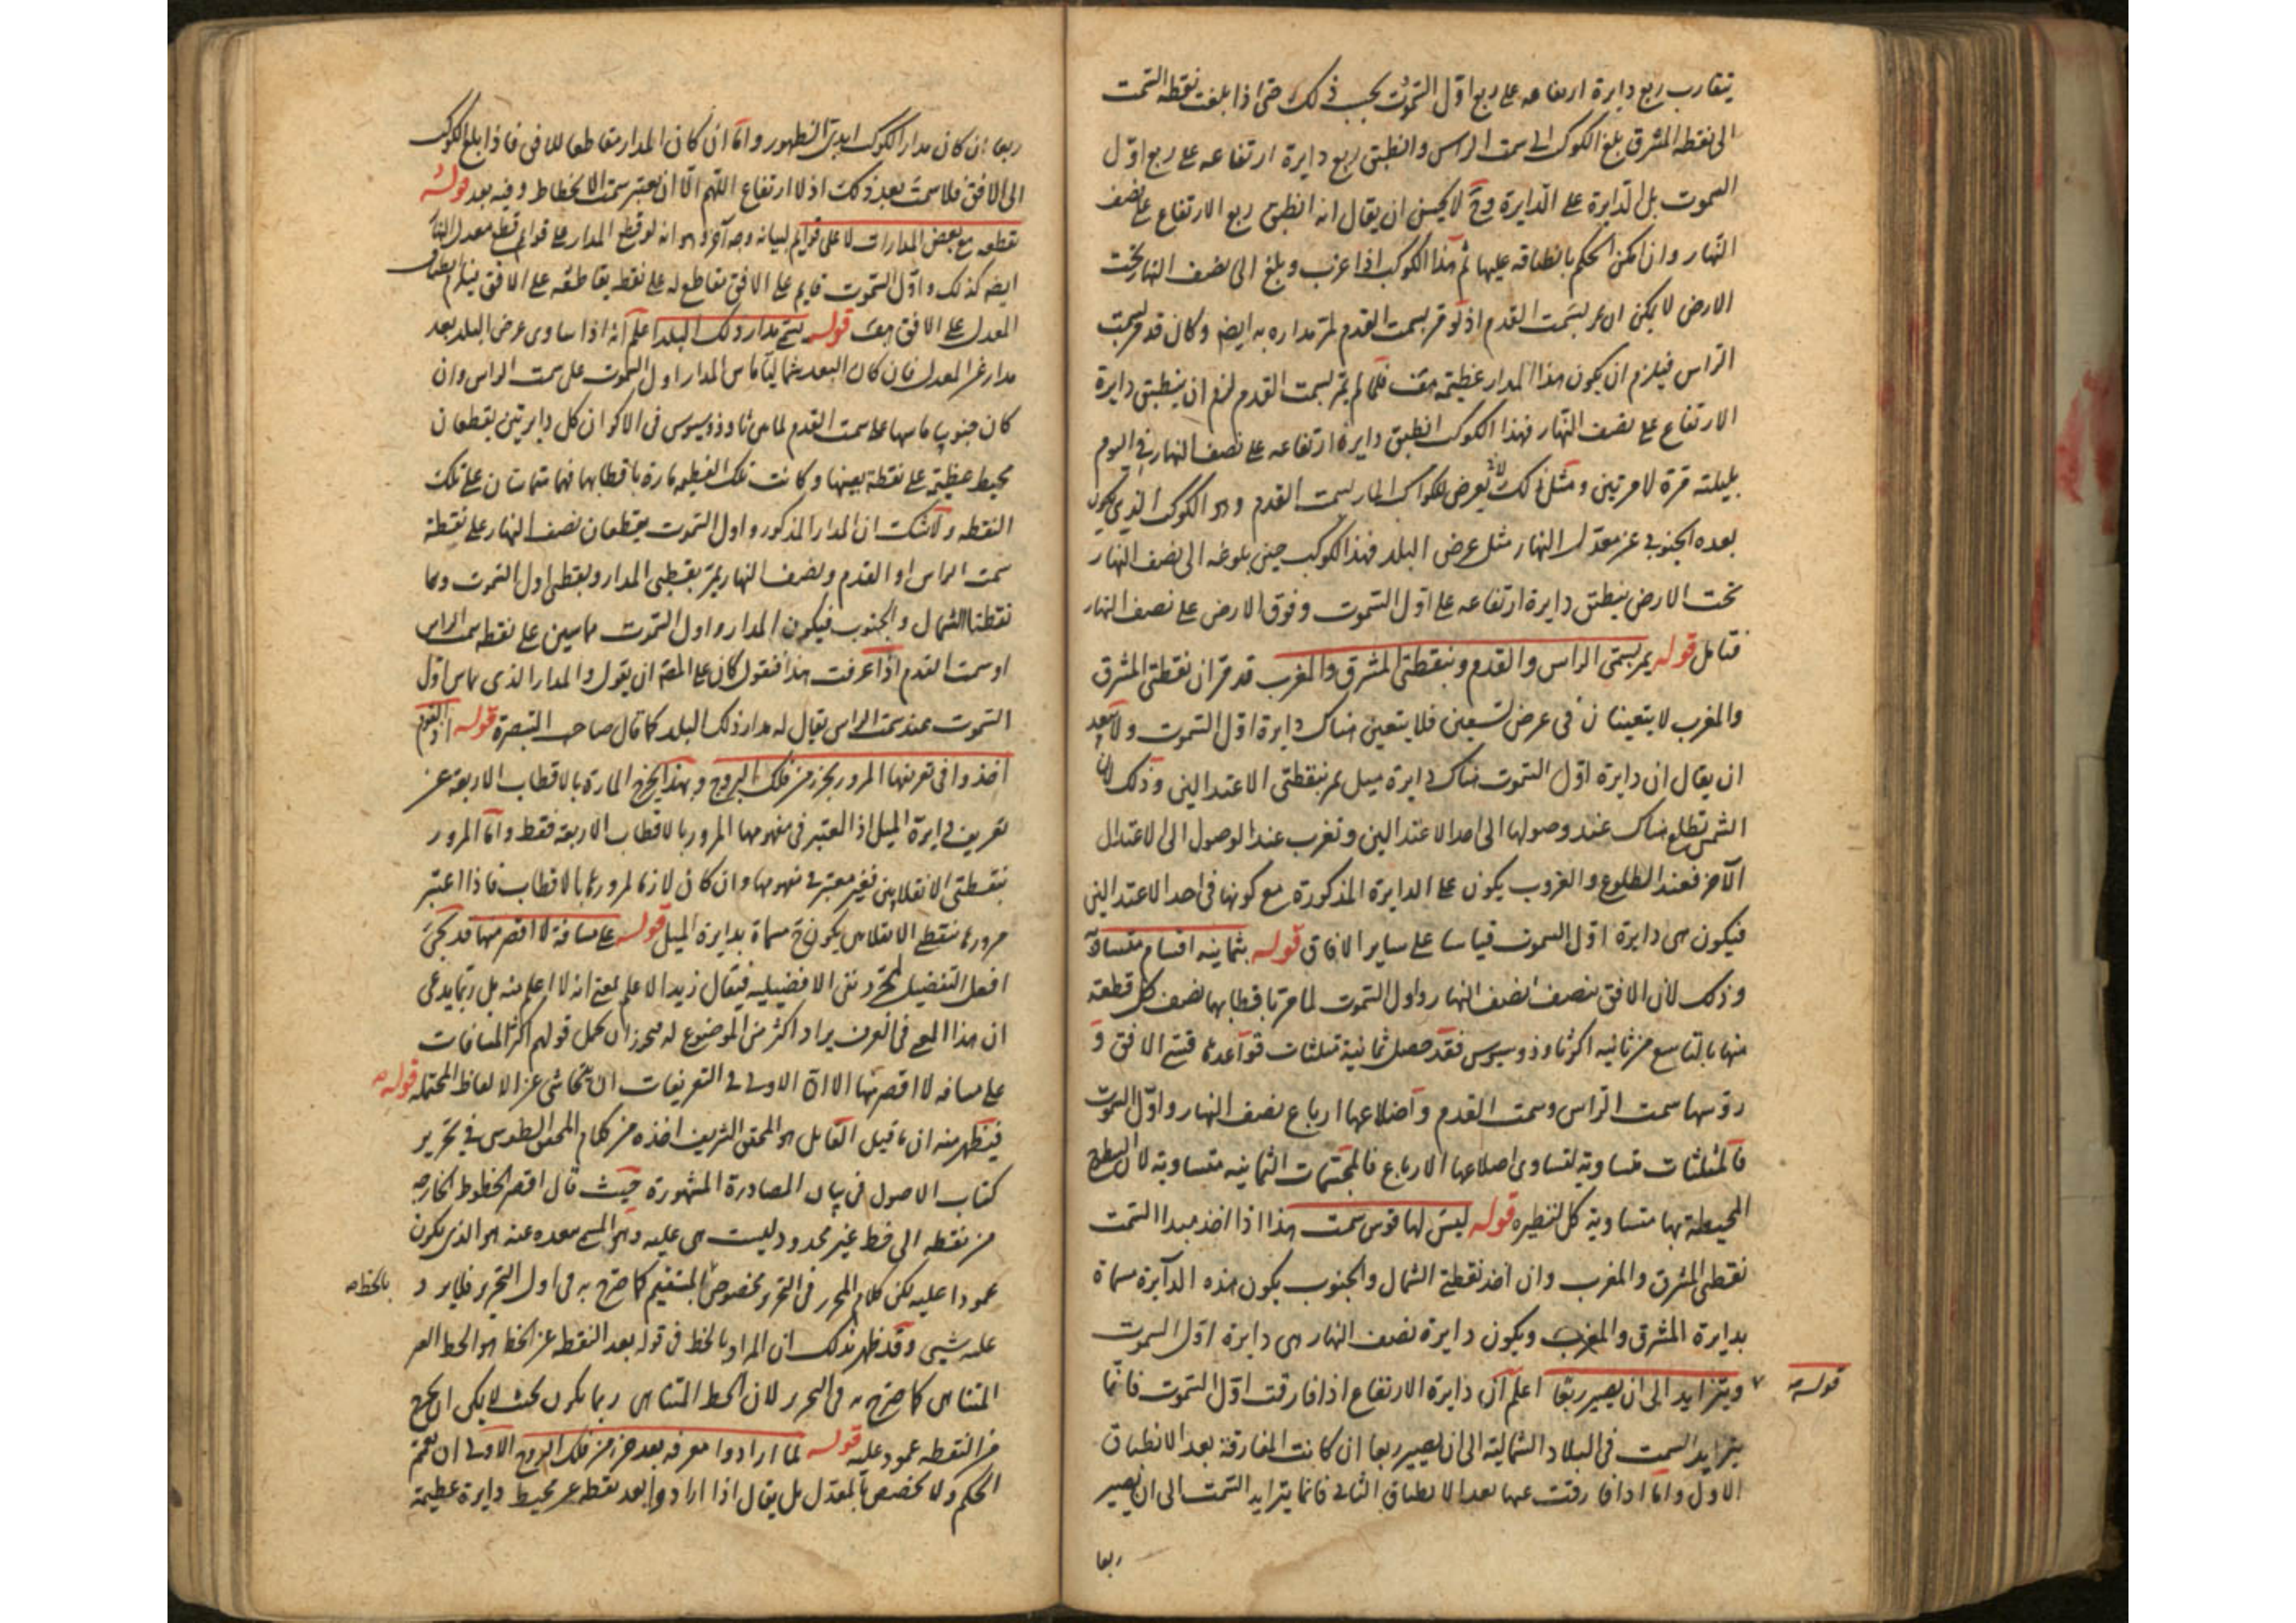 يتقارب ربع دايرة ارتفاعه على ربع اوّل السّموت بحسب ذلك حتى اذا بلغت نقطة السّمت
الى نقطة المشرق بلغ الكوكب الى سمت الراس وانطبق ربع دايرة ارتفاعه على ربع اوّل
السموت بل الدّايرة على الدّايرة وح لا يحسن ان يقال انه انطبق ربع الارتفاع على نصف
النّهار وان امكن الحكم بانطباقه عليها ثم هذا الكوكب اذا غرب وبلغ الى نصف النهار تحت
الارض لا يمكن ان يمر بسمت القدم اذ لو مر بسمت القدم لمر مداره به ايضا وكان قد مر بسمت
الراس فيلزم ان يكون هذا المدار عظيمة هف فلما لم يمر بسمت القدم لزم ان ينطبق دايرة
الارتفاع على نصف النّهار فهذا الكوكب انطبق دايرة ارتفاعه على نصف النهار في اليوم
بليلته مرة لا مرتين ومثل ذلك يعرض للكوكب المار بسمت القدم وهو الكوكب الذي يكون
بعده الجنوبى عن معدّل النهار مثل عرض البلد فهذا الكوكب حين بلوغه الى نصف النهار
تحت الارض ينطبق دايرة ارتفاعه على اوّل السّموت وفوق الارض على نصف النهار
فتامل قوله يمر بسمتى الراس والقدم وبنقطتى المشرق والمغرب قد مر ان نقطتى المشرق
والمغرب لا يتعينان فى عرض تسعين فلا يتعين هناك دايرة اوّل السّموت ولا يبعد
ان يقال ان دايرة اوّل السّموت هناك دايرة ميل تمر بنقطتى الاعتدالين وذلك لان
الشمس تطلع هناك عند وصولها الى احد الاعتدالين وتغرب عند الوصول الى الاعتدال
الآخر فعند الطلوع والغروب يكون على الدايرة المذكورة مع كونها فى احد الاعتدالين
فيكون هى دايرة اوّل السموت قياسا على ساير الافاق قوله بثمانيه اقسام متساوية
وذلك لان الافق تنصف نصف النهار واول السّموت لما مر باقطابها نصف كل قطعة
منها بالتاسع من ثانيه اكر ثاوذوسيوس فقد حصل ثمانية مثلثات قواعدها قسى الافق و
رؤسها سمت الراس وسمت القدم واضلاعها ارباع نصف النهار واوّل السموت
فالمثلثات متساوية لتساوى اضلاعها الارباع فالمجسّمات الثمانيه متساوية لان السطوح
المحيطة بها متساوية كل لنظيره قوله ليس لها قوس سمت هذا اذا اخذ مبدا السّمت
نقطتى المشرق والمغرب وان اخذ نقطتى الشمال والجنوب يكون هذه الدّايرة مسماة
بدايرة المشرق والمغرب ويكون دايرة نصف النهار هى دايرة اوّل السموت
قوله ويتزايد الى ان يصير ربعا اعلم ان دايرة الارتفاع اذا فارقت اوّل السّموت فانما
يتزايد السمت فى البلاد الشمالية الى ان يصير ربعا ان كانت المفارقة بعد الانطباق
الاول واما اذا فارقت عنها بعد الانطباق الثانى فانما يتزايد السّمت الى ان يصير
ربعا
ربعا ان كان مدار الكوكب ابدىّ الظهور واما ان كان المدار مقاطعا للافق فاذا بلغ الكوكب
الى الافق فلا سمت بعد ذلك اذ لا ارتفاع اللّهم الّا ان يعتبر سمت الانحطاط وفيه بعد قوله
تقطعه مع بعض المدارات لا على قوايم لبيانه وجه آخر وهو انه لو قطع المدار على قوايم قطع معدل النهار
ايضا كذلك واوّل السّموت قايم على الافق مقاطع له على نقطة يقاطعه على الافق فيلزم انطباق
المعدل على الافق هف قوله يسمّى مدار ذلك البلد اعلم انه اذا ساوى عرض البلد بعد
مدار عن المعدل فان كان البعد شماليا ماس المدار اول السموت على سمت الراس وان
كان جنوبيا ماسها على سمت القدم لما بين ثاوذوسيوس فى الاكر ان كل دايرتين يقطعان
محيط عظيمة على نقطة بعينها وكانت تلك العظيمة مارة باقطابها فهما متماستان على تلك
النقطه ولا شك ان المدار المذكور واول السّموت يقطعان نصف النهار على نقطة
سمت الراس او القدم ونصف النهار يمرّ بقطبى المدار وبقطبى اول السّموت وهما
نقطتا الشمال والجنوب فيكون المدار واول السّموت متماسين على نقطه سمت الراس
او سمت القدم اذا عرفت هذا فنقول كان على المص ان يقول والمدار الذى يماس اوّل
السّموت عند سمت الراس يقال له مدار ذلك البلد كما قال صاحب التبصرة قوله اذ القوم
اخذوا فى تعريفها المرور بجزء من فلك البروج وبهذا يخرج المارة بالاقطاب الاربعة عن
تعريف دايرة الميل اذ المعتبر فى مفهومها المرور بالاقطاب الاربعة فقط واما المرور
بنقطتى الانقلابين فغير معتبر فى مفهومها وان كان لازما لمرورها بالاقطاب فاذا اعتبر
مرورها بنقطتى الانقلابين يكون ح مسماة بدايرة الميل قوله على مسافة لا اقصر منها قد يجئ
افعل التفضيل لمجرد نفى الافضيلية فيقال زيد الاعلم بمعنى انه لا اعلم منه بل ربّما يدعى
ان هذا المعنى فى العرف يراد اكثر من الموضوع له فيجوز ان يحمل قولهم اكثر المسافات
على مسافه لا اقصر منها الا ان الاولى فى التعريفات ان يتحاشى عن الالفاظ المحتملة قوله
فيظهر منه ان ما قيل القايل هو المحقق الشريف اخذه من كلام المحقق الطوسى فى تحرير
كتاب الاصول فى بيان المصادرة المشهورة حيث قال اقصر الخطوط الخارجه
من نقطه الى خط غير محدود ليست هى عليه وهو المسمى ببعده عنه هو الذى يكون
عمودا عليه لكن كلام المحرر فى التحرير مخصوص بالمستقيم كما صرّح به فى اول التحرير فلا يرد
بالخط
عليه شيئ وقد ظهر بذلك ان المراد بالخط فى قوله بعد النقطه عن الخط هو الخط الغير
المتناهى كما صرّح به فى التحرير لان الخط المتناهى ربما يكون بحيث لا يمكن ان يخرج
من النقطه عمود عليه قوله لما ارادوا معرفه بعد جزء من فلك البروج الاولى ان يعمّ
الحكم ولا يخصص بالمعدل بل يقال اذا ارادوا بعد نقطه عن محيط دايرة عظيمة